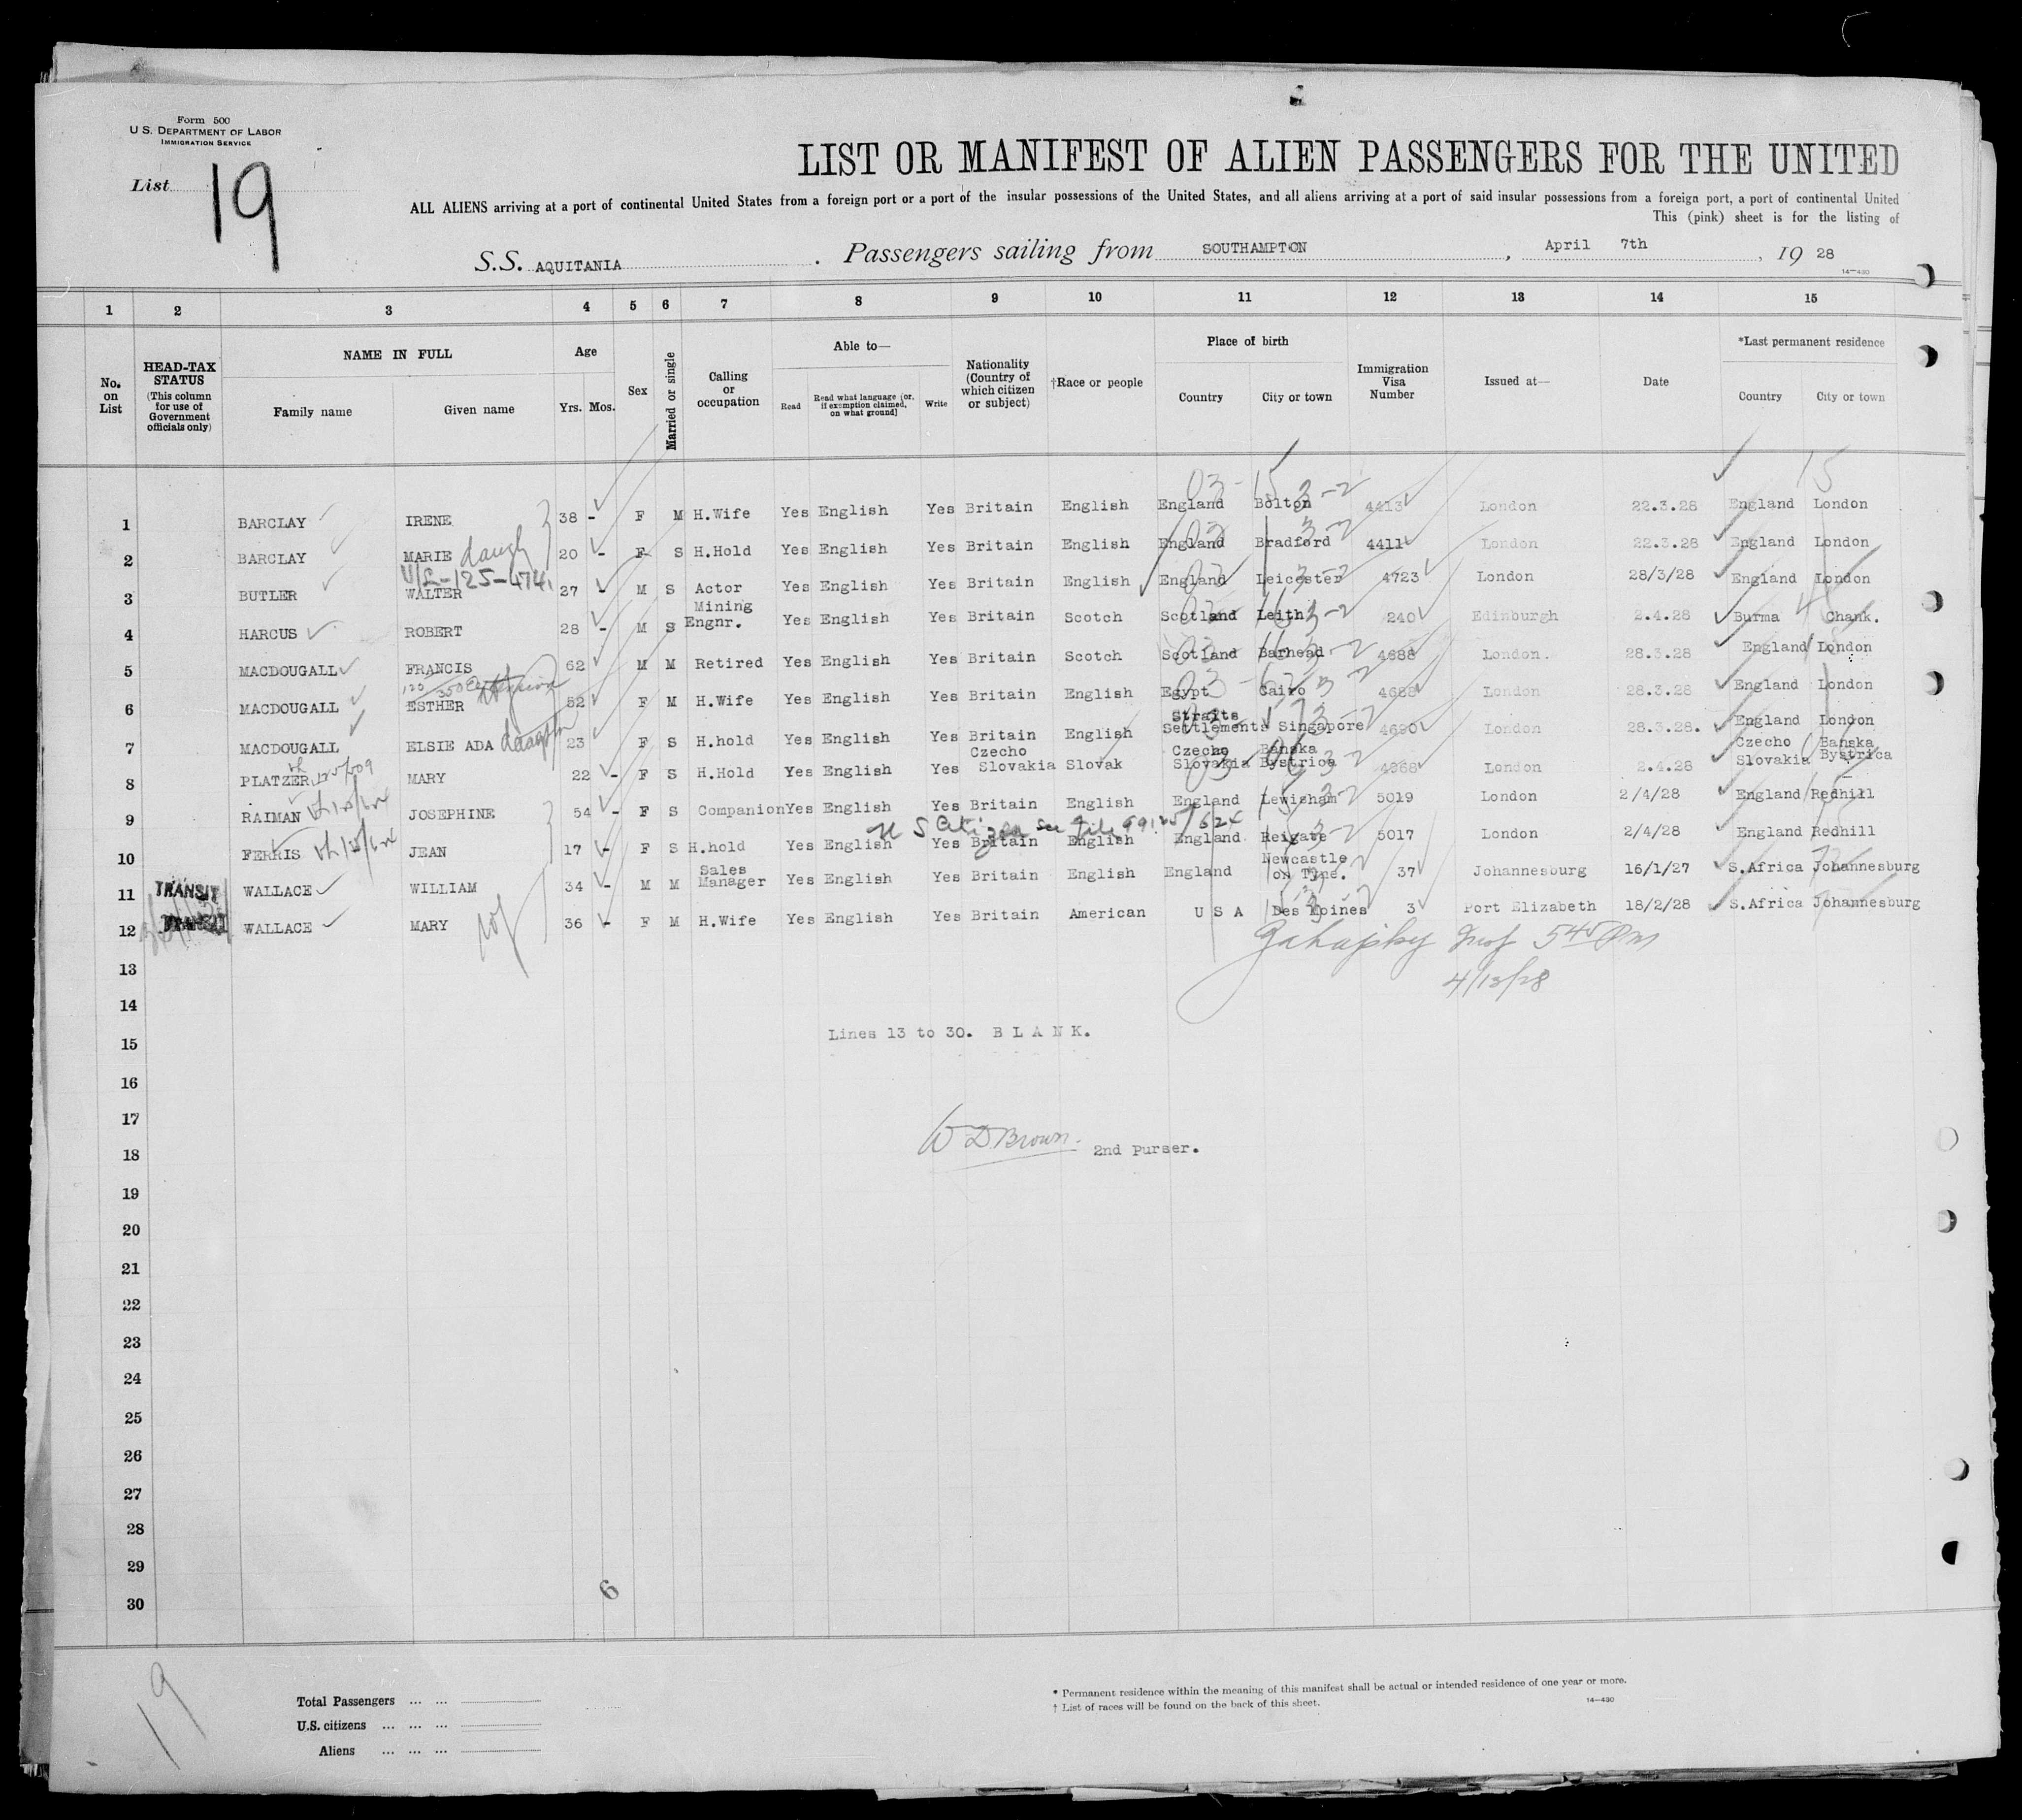 Form 500
U. S. DEPARTMENT OF LABOR
IMMIGRATION SERVICE
List 19
LIST OR MANIFEST OF ALIEN PASSENGERS FOR THE UNITED
ALL ALIENS arriving at a port of continental United States from a foreign port or a port of the insular possessions of the United States, and all aliens arriving at a port of said insular possessions from a foreign port, a port of continental United
This (pink) sheet is for the listing of
S.S. AQUITANIA . Passengers sailing from SOUTHAMPTON , April 7th , 19 28
14—430
1 2 3 4 5 6 7 8 9 10 11 12 13 14 15
No. on List
HEAD-TAX STATUS (This column for use of Government officials only)
NAME IN FULL
Family name Given name
Age
Yrs. Mos.
Sex
Married or single
Calling or occupation
Able to—
Read Read what language [or, if exemption claimed, on what ground] Write
Nationality (Country of which citizen or subject)
†Race or people
Place of birth
Country City or town
Immigration Visa Number
Issued at—
Date
*Last permanent residence
Country City or town
1 BARCLAY IRENE 38 - F M H.Wife Yes English Yes Britain English England Bolton 4413 London 22.3.28 England London
2 BARCLAY MARIE daugh 20 - F S H.Hold Yes English Yes Britain English England Bradford 4411 London 22.3.28 England London
V/L-125-474
3 BUTLER WALTER 27 M S Actor Yes English Yes Britain English England Leicester 4723 London 28/3/28 England London
4 HARCUS ROBERT 28 - M S Mining Engnr. Yes English Yes Britain Scotch Scotland Leith 240 Edinburgh 2.4.28 Burma Chank.
5 MACDOUGALL FRANCIS 62 M M Retired Yes English Yes Britain Scotch Scotland Barhead 4688 London. 28.3.28 England London
6 MACDOUGALL ESTHER 52 F M H.Wife Yes English Yes Britain English Egypt Cairo 4688 London 28.3.28 England London
7 MACDOUGALL ELSIE ADA 23 F S H.hold Yes English Yes Britain English Straits Settlements Singapore 4690 London 28.3.28. England London
8 PLATZER MARY 22 - F S H.Hold Yes English Yes Czecho Slovakia Slovak Czecho Slovakia Banska Bystrica 4968 London 2.4.28 Czecho Slovakia Banska Bystrica
9 RAIMAN JOSEPHINE 54 - F S Companion Yes English Yes Britain English England Lewisham 5019 London 2/4/28 England Redhill
U S Citizen see file
10 FERRIS JEAN 17 - F S H.hold Yes English Yes Britain English England Reigate 5017 London 2/4/28 England Redhill
11 TRANSIT WALLACE WILLIAM 34 - M M Sales Manager Yes English Yes Britain English England Newcastle on Tyne. 37 Johannesburg 16/1/27 S.Africa Johannesburg
12 TRANSIT WALLACE MARY 36 - F M H.Wife Yes English Yes Britain American U S A Des Moines 3 Port Elizabeth 18/2/28 S.Africa Johannesburg
13
14
Lines 13 to 30. B L A N K.
15
16
17
W D Brown. 2nd Purser.
18
19
20
21
22
23
24
25
26
27
28
29
30
6
19
Total Passengers ... ...
U.S. citizens ... ... ...
Aliens ... ... ...
* Permanent residence within the meaning of this manifest shall be actual or intended residence of one year or more.
† List of races will be found on the back of this sheet.
14—430